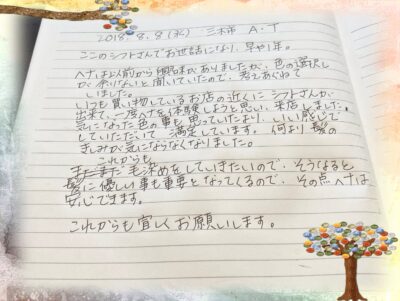 2018. 8. 8 (水) 三木市 A・T
ここのシフトさんでお世話になり、早や1年。
ヘナは以前から興味がありましたが、色の選択しが
余りないと聞いていたので、考えあぐねて
いました。
いつも買い物しているお店の近くに シフトさんが
出来て、一度ヘナを体験しようと思い、来店しました。
気になった色の事も思っていたより、いい感じで
していただいて、満足しています。何より 髪の
きしみが気にならなくなりました。
これからも
毛染めをしていきたいので、そうなると
髪に優しい事も重要となってくるので、その点ヘナは
安心できます。
これからも宜しくお願いします。